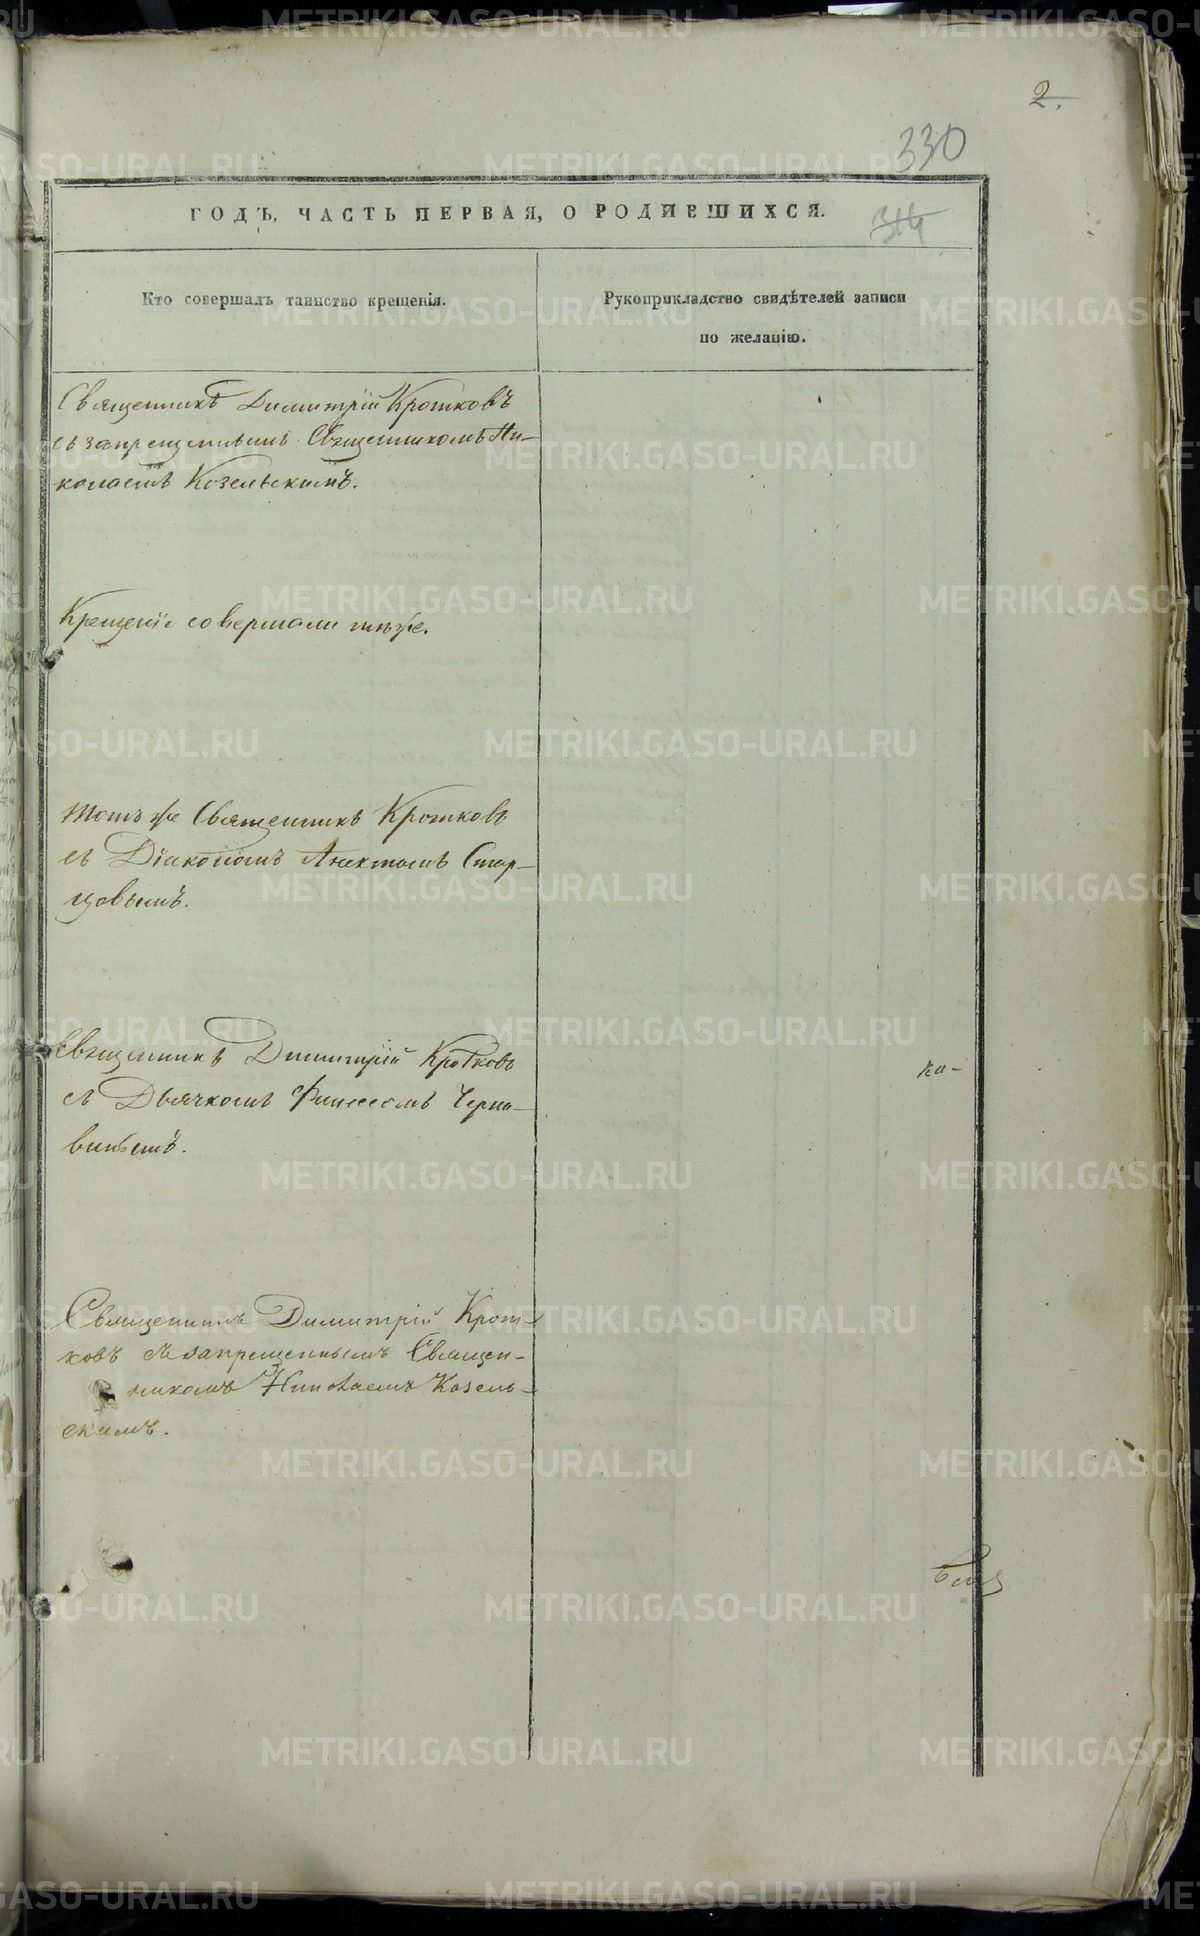 2.
330
ГОДЪ, ЧАСТЬ ПЕРВАЯ, О РОДИВШИХСЯ.
314
Кто совершалъ таинство крещенія.
Рукоприкладство свидѣтелей записи
по желанію.
Священникъ Димитрій Кротковъ
съ запрещеннымъ Священникомъ Ни-
колаемъ Козельскимъ.
Крещеніе совершали тѣже.
Тотъ же Священникъ Кротковъ
съ Діакономъ Анектомъ Стар-
цовымъ.
Священникъ Димитрій Кротковъ
съ Дьячкомъ Финеесомъ Черна-
винымъ.
Священникъ Димитрій Крот-
ковъ съ запрещеннымъ Священ-
никомъ Николаемъ Козель-
скимъ.
METRIKI.GASO-URAL.RU